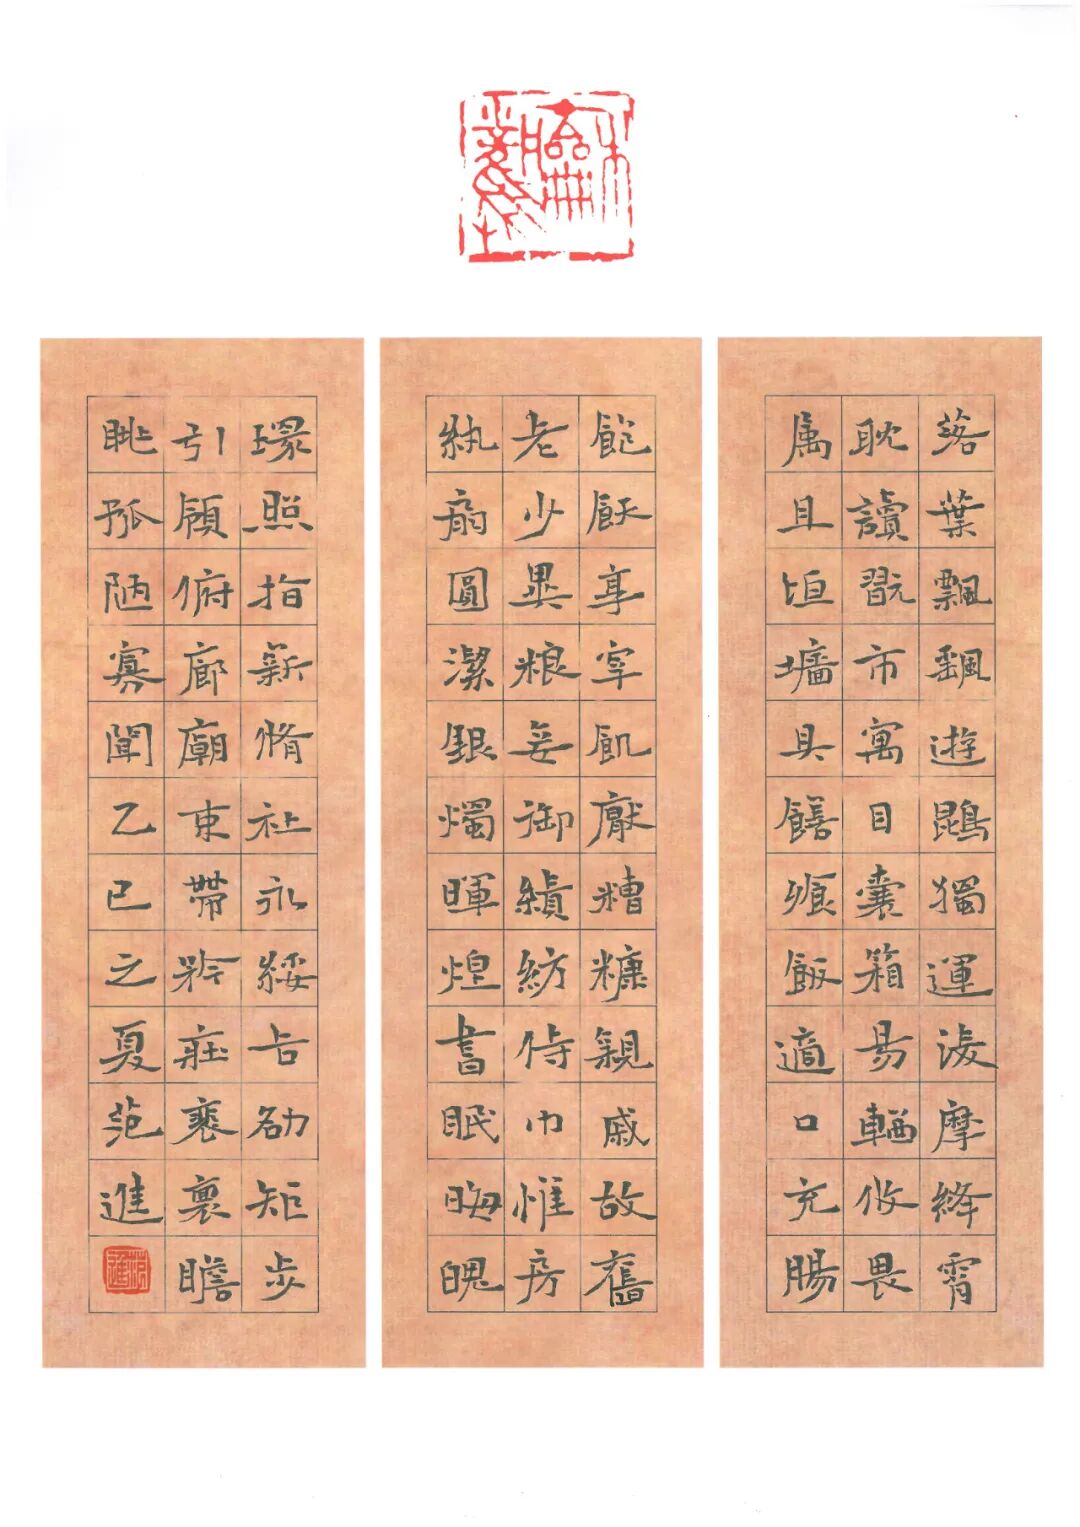 落葉飄颻遊鵾獨運淩摩絳霄
耽讀翫市寓目囊箱易輶攸畏
属耳垣墻具饍飡飯適口充腸
飽飫享宰飢厭糟糠親戚故舊
老少異粮妾御績紡侍巾帷房
紈扇圓潔銀燭暐煌晝眠晦魄
環照指薪脩祜永綏吉劭矩步
引領俯廊廟束帶矜莊裴裏瞻
眺孤陋寡聞乙巳之夏范進
范進